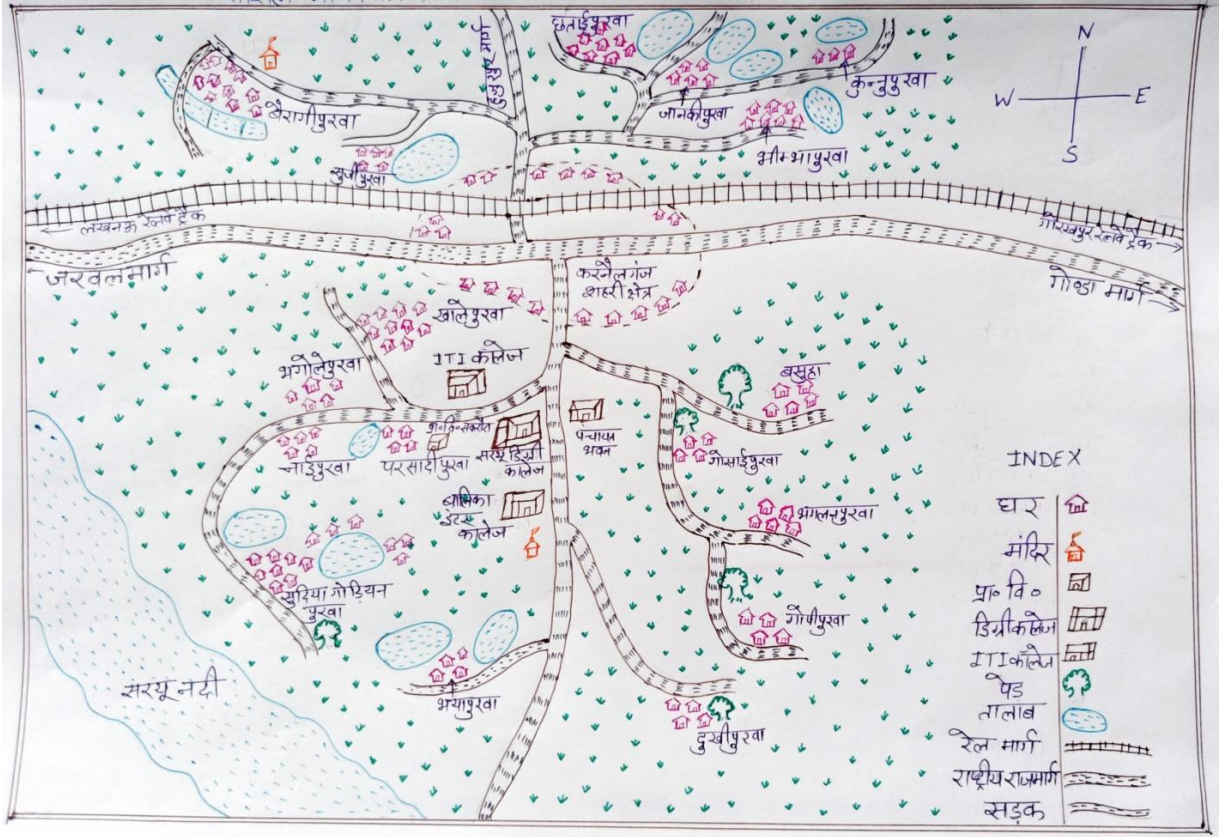 छताईपुरवा
N
W
E
S
कुन्नुपुरवा
जानकीपुरवा
भीम्भापुरवा
बैरागीपुरवा
सुर्जीपुरवा
लखनऊ रेलवे ट्रैक
गोरखपुर रेलवे ट्रैक
जरवल मार्ग
गोण्डा मार्ग
करनैलगंज
शहरी क्षेत्र
खालेपुरवा
भगोलेपुरवा
ITI कॉलेज
बसुहा
पंचायत
भवन
नाइपुरवा
परसादीपुरवा
सरयू डिग्री
कॉलेज
गोसाईपुरवा
बालिका
इंटर
कॉलेज
भगलनपुरवा
गोड़ियन
पुरवा
गोपीपुरवा
सरयू नदी
भयापुरवा
दुखीपुरवा
INDEX
घर
मंदिर
प्रा० वि०
डिग्री कॉलेज
ITI कॉलेज
पेड
तालाब
रेल मार्ग
राष्ट्रीय राजमार्ग
सड़क